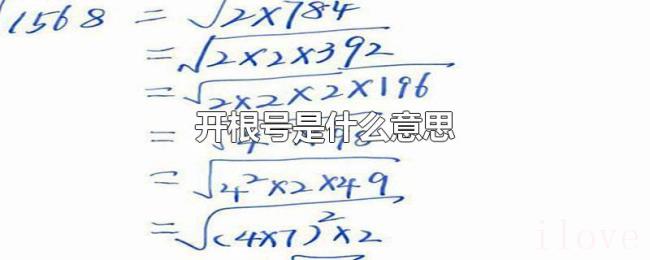 √1568 = √2×784
= √2×2×392
= √2×2×2×196
= √4 98
开根号是什么意思
= √4²×2×49
= √(4×7)²×2
ilove